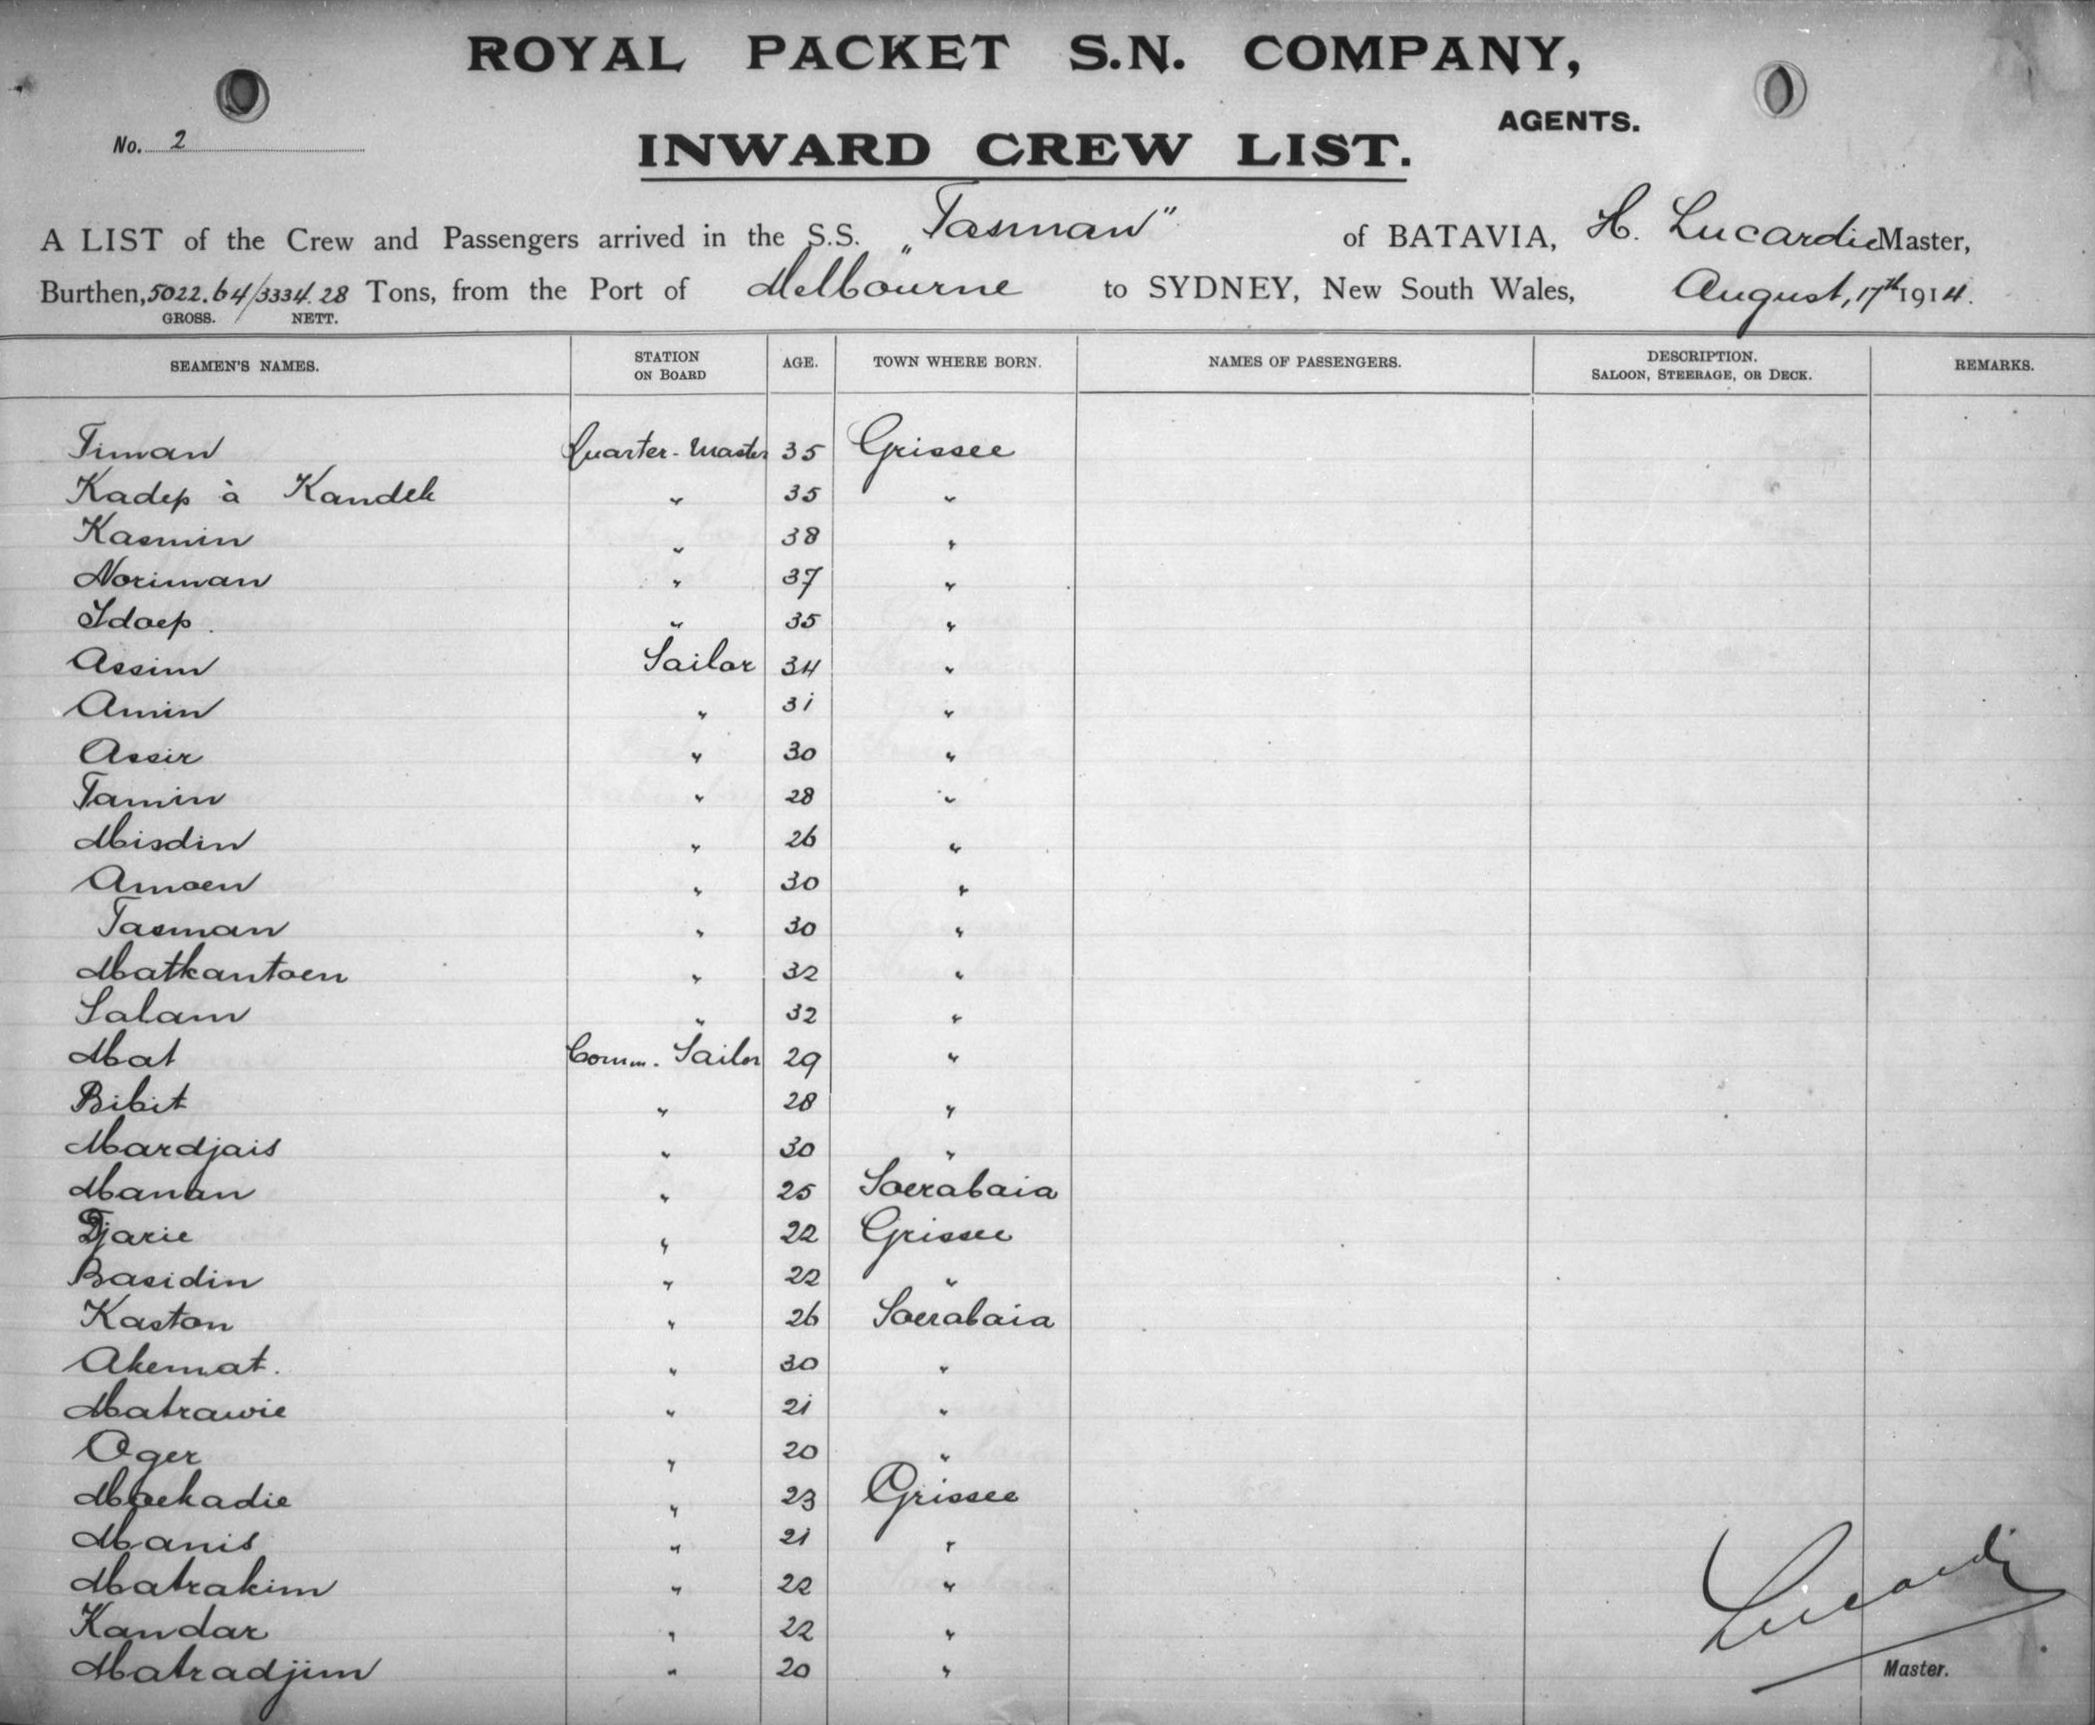 ROYAL PACKET S.N. COMPANY,
AGENTS.
No. 2
INWARD CREW LIST.
A LIST of the Crew and Passengers arrived in the S.S. „Tasman" of BATAVIA, H. Lucardie Master,
Burthen, 5022.64/3334.28 Tons, from the Port of Melbourne to SYDNEY, New South Wales, August, 17th 1914.
GROSS. NETT.
SEAMEN'S NAMES. STATION ON BOARD AGE. TOWN WHERE BORN. NAMES OF PASSENGERS. DESCRIPTION. SALOON, STEERAGE, OR DECK. REMARKS.
Timan Quarter-Master 35 Grissee
Kadep à Kandek " 35 "
Kasmin " 38 "
Noriman " 37 "
Idoep. " 35 "
Assim Sailor 34 "
Amin " 31 "
Assir " 30 "
Tamin " 28 "
Misdin " 26 "
Amoen " 30 "
Tasman " 30 "
Matkantoen " 32 "
Salam " 32 "
Mat Comm. Sailor 29 "
Bibit " 28 "
Mardjais " 30 "
Manan " 25 Soerabaia
Djarie " 22 Grissee
Basidin " 22 "
Kaston " 26 Soerabaia
Akemat. " 30 "
Matrawie " 21 "
Oger " 20 "
Moekadie " 23 Grissee
Manis " 21 "
Matrakim " 22 "
Kandar " 22 "
Matradjim " 20 "
Lucardie
Master.